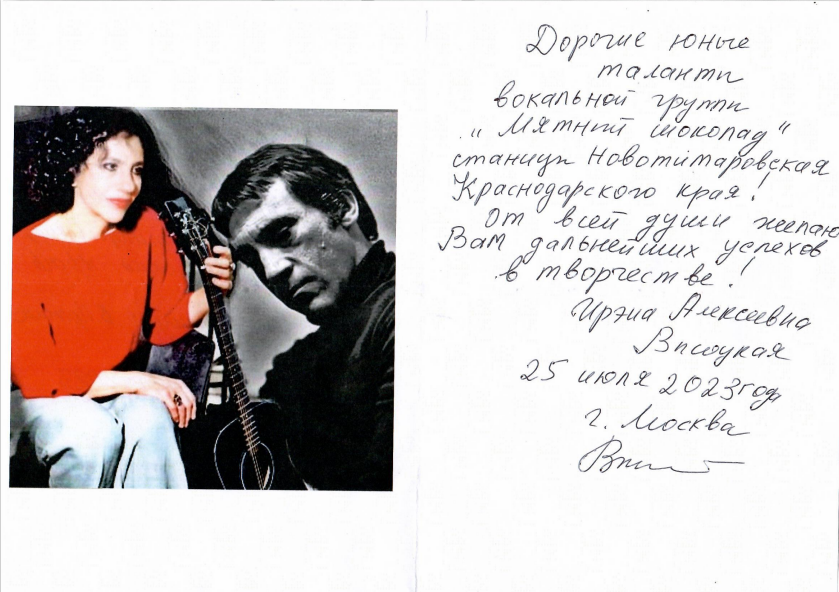 Дорогие юные
таланты
вокальной группы
"Мятный шоколад"
станицы Новотитаровская
Краснодарского края!
От всей души желаю
Вам дальнейших успехов
в творчестве!
Ирэна Алексеевна
Высоцкая
25 июля 2023 год
г. Москва